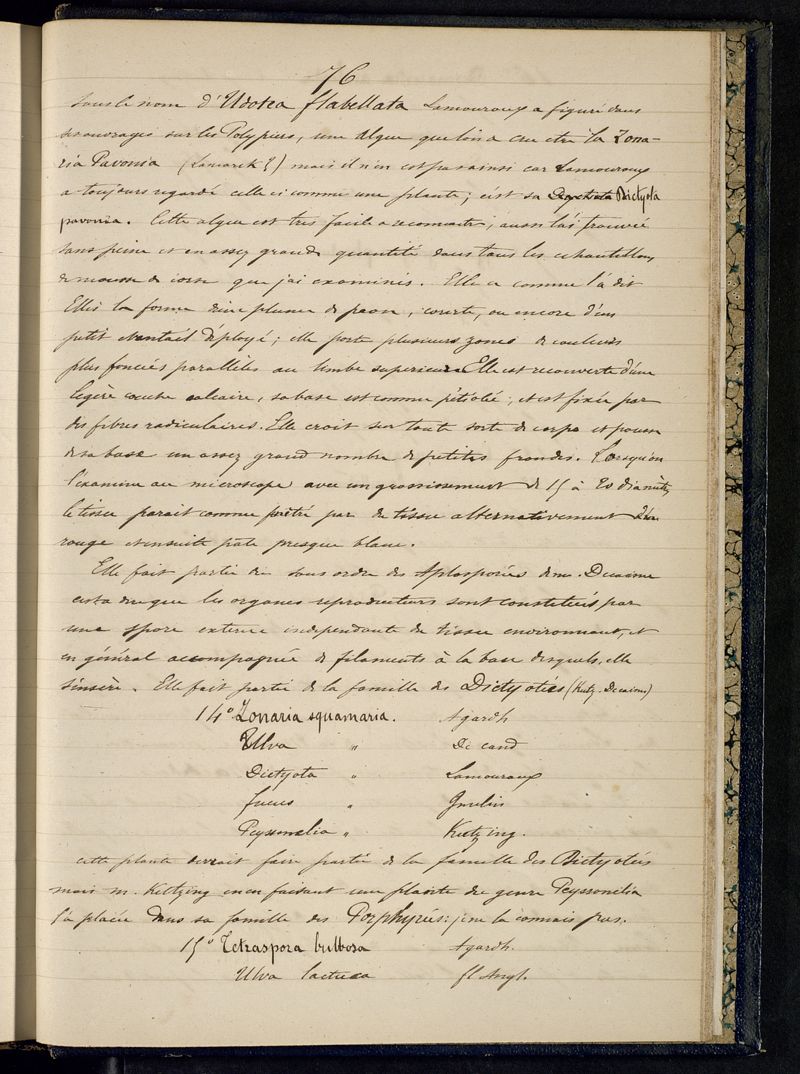 76
sous le nom d'Udotea flabellata Lamouroux a figuré dans
ses ouvrages sur les Polypiers, une algue que l'on a cru etre la Zona-
ria Pavonia (Lamarck) mais il n'en est pas ainsi car Lamouroux
a toujours regardé celle ci comme une plante; c'est sa Dictyota
pavonia. Cette algue est tres facile a reconnaitre; aussi l'ai trouvée
sans peine et en assez grande quantité dans tous les echantillons
de mousse de corse que j'ai examinés. Elle a comme l'a dit
Ellis la forme d'une plume de paon, courte, ou encore d'un
petit eventail déployé; elle porte plusieurs zones de couleurs
plus foncées parallèles au limbe superieur. Elle est recouverte d'une
legère couche calcaire, sa base est comme pétiolée; et est fixée par
des fibres radiculaires. Elle croit sur toute sorte de corps et pousse
de sa base un assez grand nombre de petites frondes. Lorsqu'on
l'examine au microscope avec un grossissement de 15 à 20 diamètres
le tissu parait comme par de tissu alternativement
rouge et ensuite pale presque blanc.
Elle fait partie du sous ordre des Aplosporées de m. Decaisne
cest a dire que les organes reproducteurs sont constitués par
une spore externe independante du tissu environnant, et
en général accompagnée de filaments à la base desquels elle
s'insère. Elle fait partie de la famille des Dictyotées (Kutz. Decaisne)
14° Zonaria squamaria. Agardh
Ulva " De cand
Dictyota " Lamouroux
fucus " Gmelin
Peyssonelia " Kutzing.
cette plante devrait faire partie de la famille des Dictyotées
mais m. Kutzing en en faisant une plante du genre Peyssonelia
l'a placée dans sa famille des Porphyrées; je ne la connais pas.
15° Tetraspora bulbosa Agardh.
Ulva lactuca fl Angl.